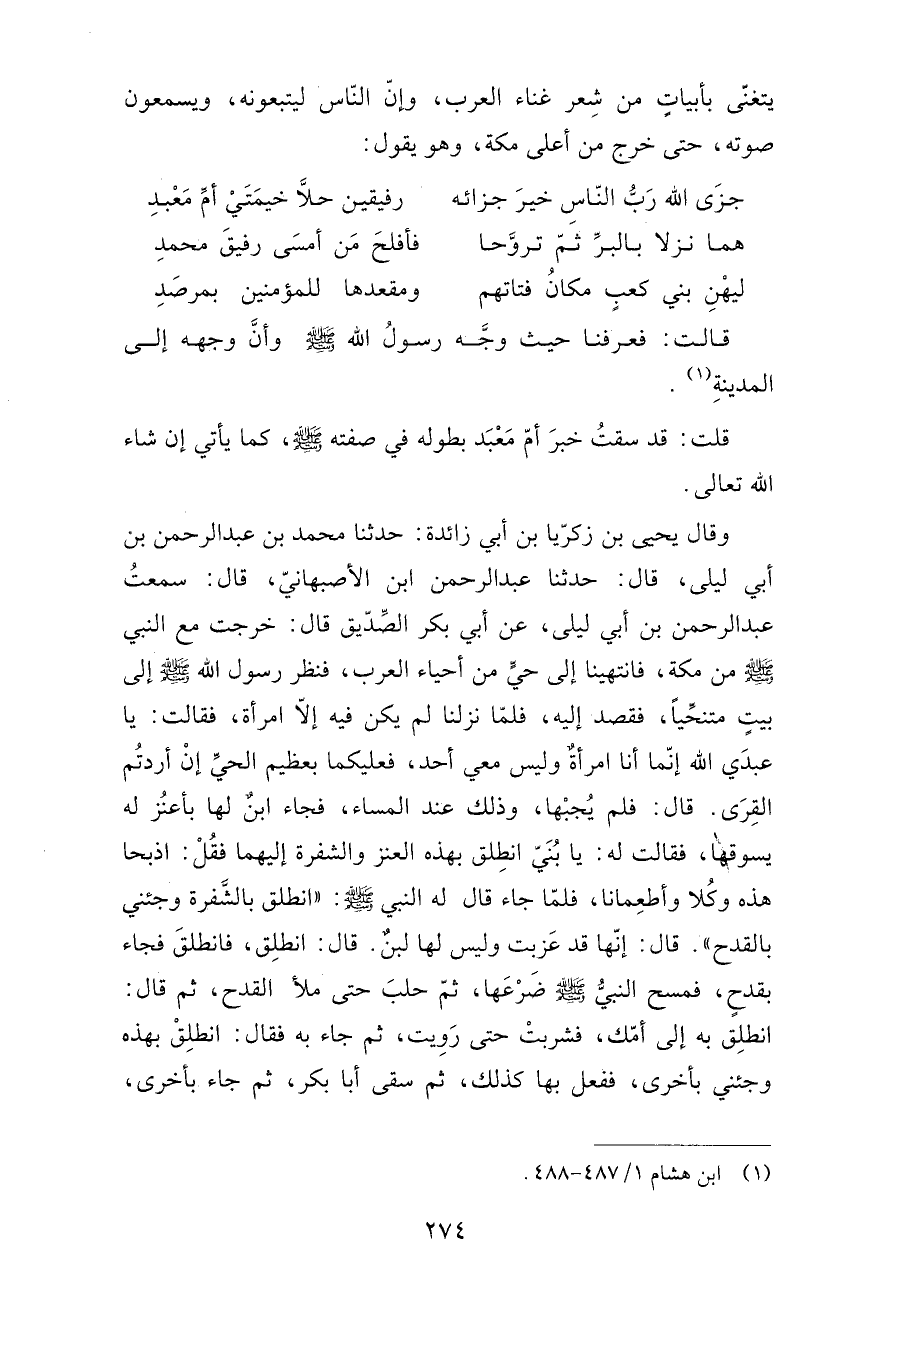 يتغنّى بأبياتٍ من شِعر غناء العرب، وإنّ النّاس ليتبعونه، ويسمعون
صوته، حتى خرج من أعلى مكة، وهو يقول:
جزَى الله رَبُّ النّاسِ خيرَ جزائه رفيقين حلاَّ خيمَتَيْ أمِّ مَعْبدِ
هما نزلا بالبرِّ ثمّ تروَّحا فأفلحَ مَن أمسَى رفيقَ محمدِ
ليهْنِ بني كعبٍ مكانُ فتاتهم ومقعدها للمؤمنين بمرصَدِ
قالت: فعرفنا حيث وجَّه رسولُ الله ﷺ وأنَّ وجهه إلى
المدينةِ(١) .
قلت: قد سقتُ خبرَ أمّ مَعْبَد بطوله في صفته ﷺ، كما يأتي إن شاء
الله تعالى.
وقال يحيى بن زكريّا بن أبي زائدة: حدثنا محمد بن عبدالرحمن بن
أبي ليلى، قال: حدثنا عبدالرحمن ابن الأصبهانيّ، قال: سمعتُ
عبدالرحمن بن أبي ليلى، عن أبي بكر الصِّدّيق قال: خرجت مع النبي
ﷺ من مكة، فانتهينا إلى حيٍّ من أحياء العرب، فنظر رسول الله ﷺ إلى
بيتٍ متنحِّياً، فقصد إليه، فلمّا نزلنا لم يكن فيه إلاّ امرأة، فقالت: يا
عبدَي الله إنّما أنا امرأةٌ وليس معي أحد، فعليكما بعظيم الحيِّ إنْ أردتُم
القِرَى. قال: فلم يُجبْها، وذلك عند المساء، فجاء ابنٌ لها بأعنُز له
يسوقها، فقالت له: يا بُنَيّ انطلِق بهذه العنز والشفرة إليهما فقُلْ: اذبحا
هذه وكُلا وأطعِمانا، فلمّا جاء قال له النبي ﷺ: «انطلق بالشَّفرة وجئني
بالقدح». قال: إنّها قد عَزبت وليس لها لبنٌ. قال: انطلِق، فانطلقَ فجاء
بقدحٍ، فمسح النبيُّ ﷺ ضَرْعَها، ثمّ حلبَ حتى ملأ القدح، ثم قال:
انطلِق به إلى أمّك، فشربتْ حتى رَوِيت، ثم جاء به فقال: انطلِقْ بهذه
وجئني بأخرى، ففعل بها كذلك، ثم سقى أبا بكر، ثم جاء بأخرى،
(١) ابن هشام ١/ ٤٨٧-٤٨٨ .
٢٧٤